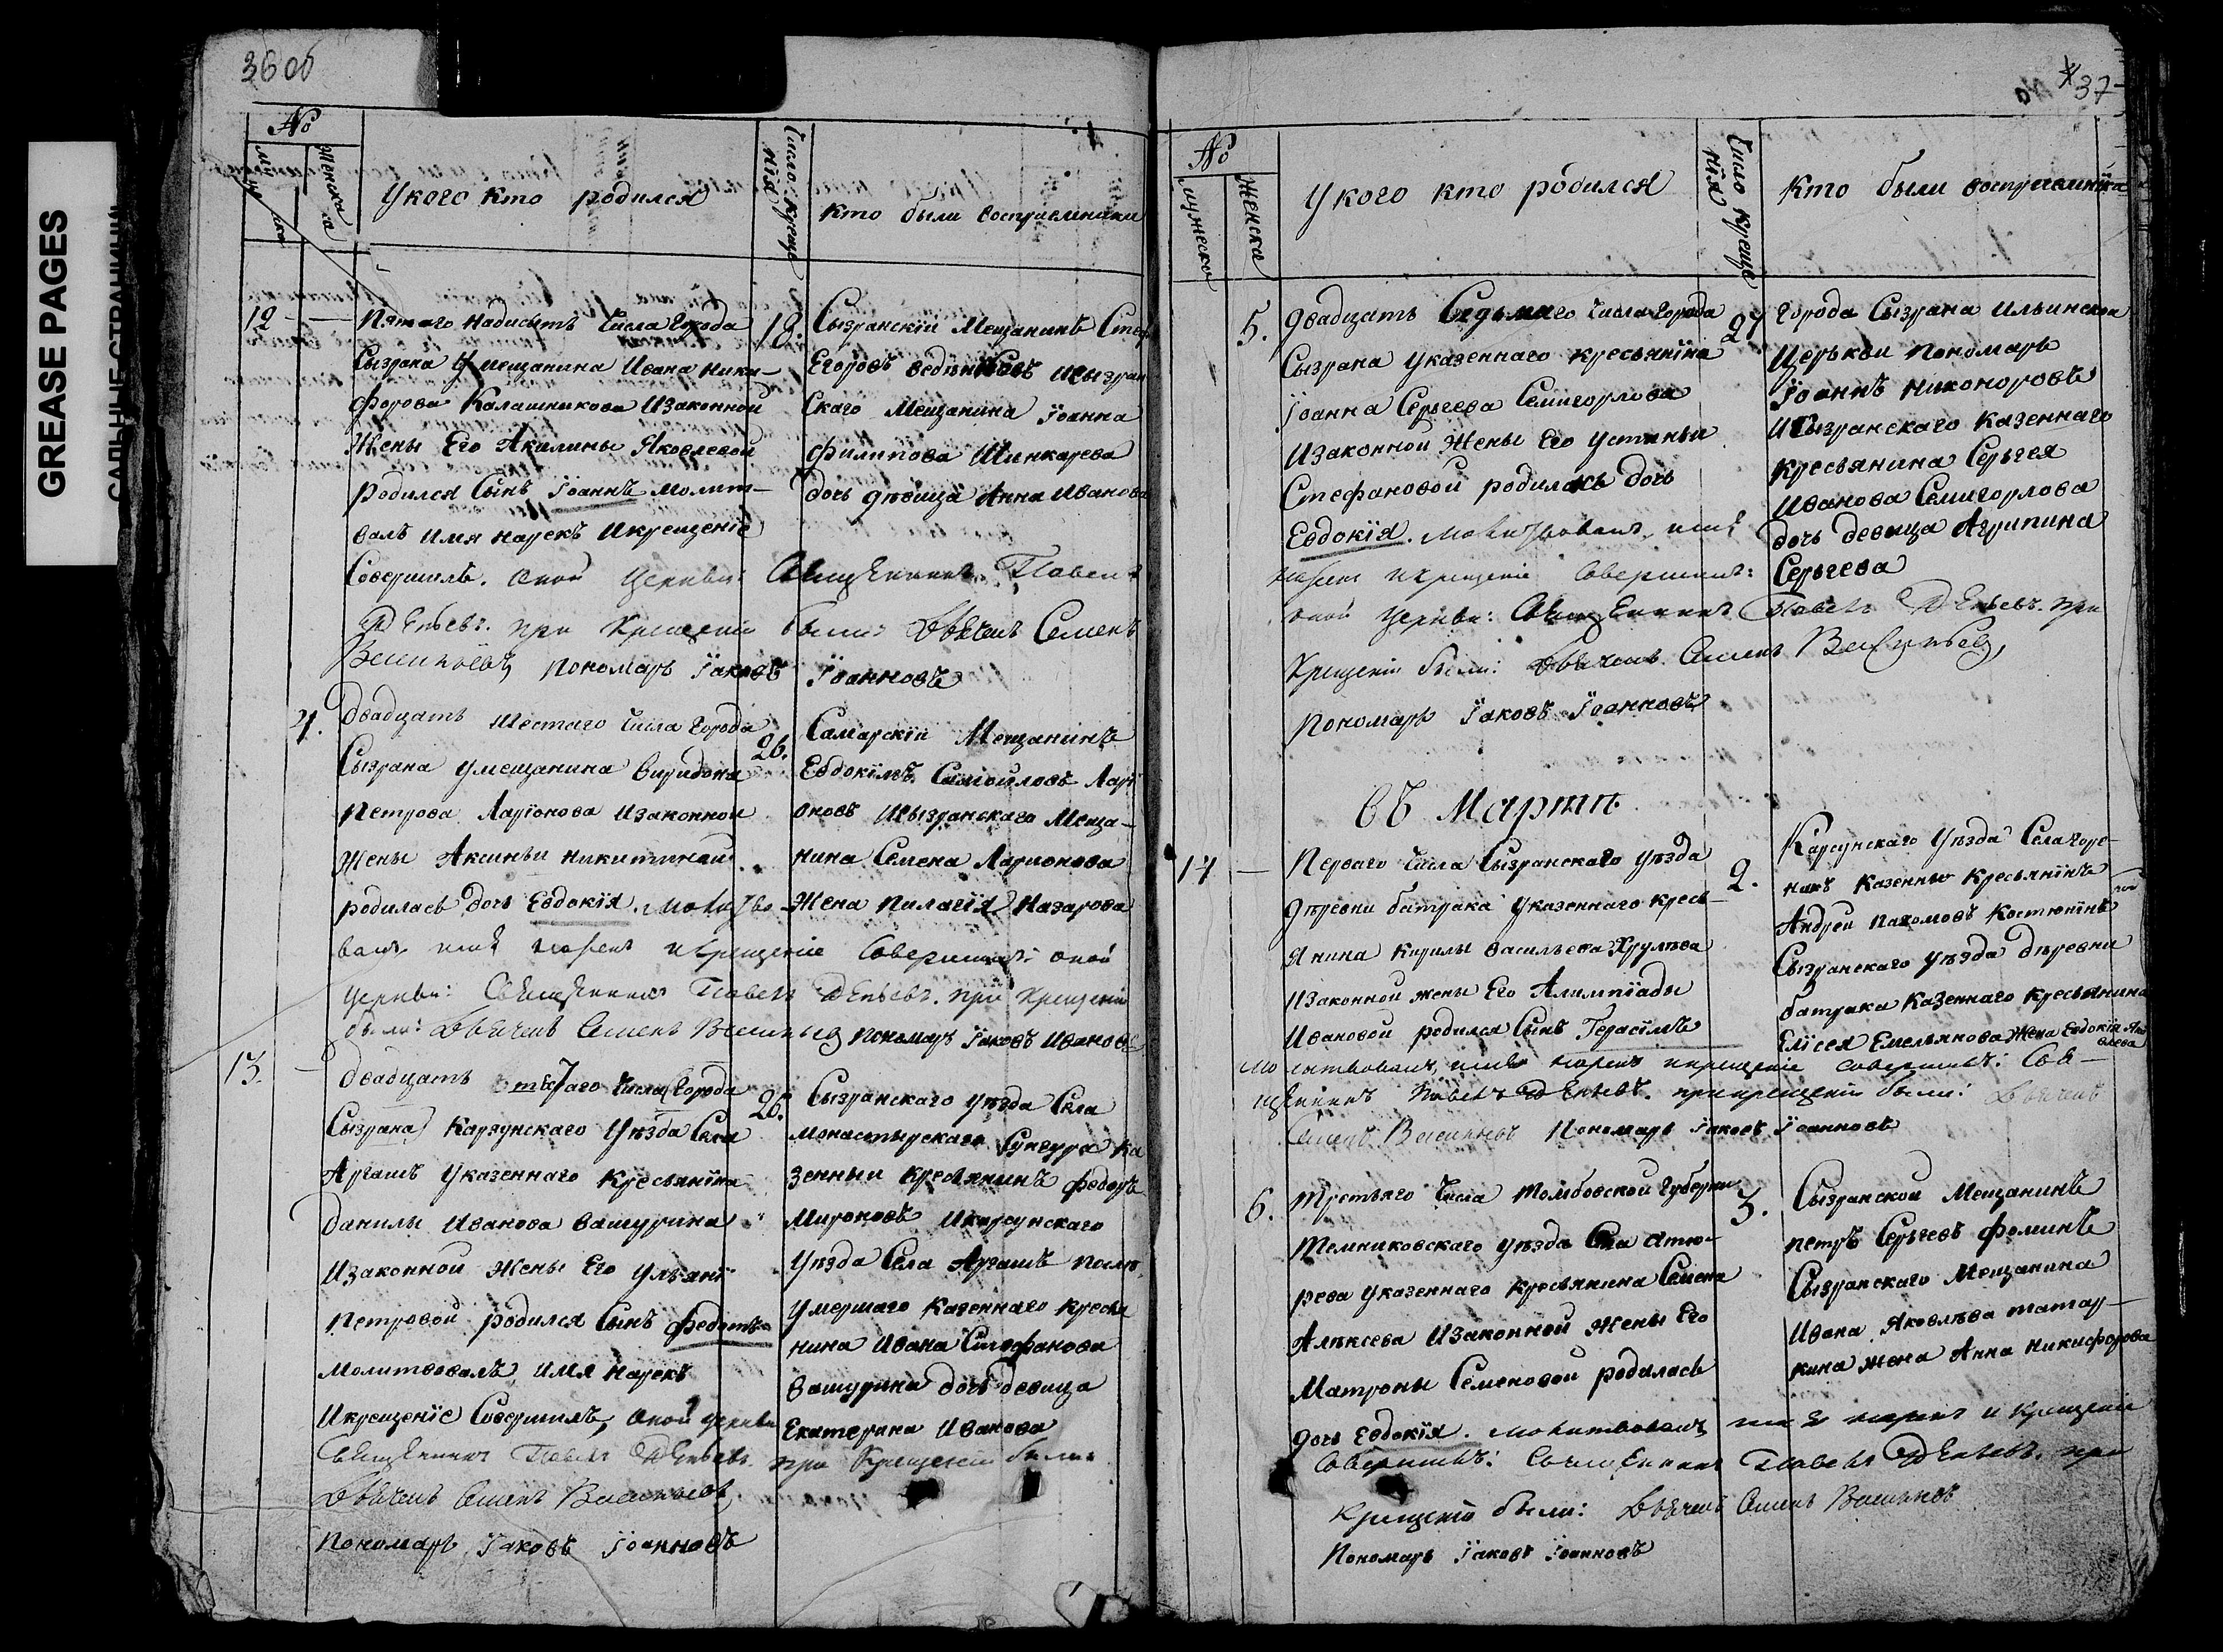 GREASE PAGES
САЛЬНЫЕ СТРАНИЦЫ
36 об
№
женска
У кого кто родился
Число крещенія
Кто были восприемники
12 —
Пятаго надисять числа города
Сызрана у мещанина Ивана Ники-
форова Калашникова И законной
жены Его Акилины Яковлевой
родился сынъ Іоаннъ молит-
валъ имя нарекъ И крещеніе
Совершилъ. оной церкви: Священникъ Павелъ
при крещеніи были: Дьячекъ Семенъ
Васильевъ, пономарь Іаковъ Іоанновъ
18.
Сызранскій Мещанинъ
Егоровъ И сызран
скаго Мещанина Іоанна
Филипова Шинкарева
дочь дѣвица Анна Иванова
4.
Двадцать шестаго числа города
Сызрана у мещанина Спиридона
Петрова Ларіонова И законной
жены Аксиньи Никитиной
родилась дочь Евдокія. молитво
валъ имя нарекъ и крещеніе Совершилъ: оной
церкви: Священникъ Павелъ при крещеніи
были: Дьячекъ Семенъ Васильевъ пономарь Іаковъ Ивановъ
26.
Самарскій Мещанинъ
Евдокимъ Самойловъ Лари
оновъ И сызранскаго Меща-
нина Семена Ларионова
жена Пилагія Назарова
13. —
Двадцать числа города
Сызрана Карсунскаго Уѣзда Села
Аргашъ У казеннаго кресьянина
Данилы Иванова Вашурина
И законной жены Его Ульяніи
Петровой родился Сынъ Федотъ
молитвовалъ имя нарекъ
И крещеніе Совершилъ, оной церкви
Священникъ Павелъ при Крещеніи были:
Дьячекъ Семенъ Васильевъ
Пономарь Іаковъ Іоанновъ
26.
Сызранскаго уѣзда Села
монастырскаго Сунгура ка
зенный кресьянинъ Федоръ
Мироновъ И карсунскаго
уѣзда Села Аргашъ
умершаго казеннаго кресья
нина Ивана Стефанова
Вашурина дочь девица
Екатерина Иванова
37
№
мужеска
женска
У кого кто родился
Число крещенія
Кто были восприемники
5.
двадцать Седьмаго числа города
Сызрана У казеннаго кресьянина
Іоанна Сергеева Семигорлова
И законной жены Его Устиньи
Стефановой родилась дочь
Евдокія. молитвовалъ, имя
нарекъ и крещеніе Совершилъ:
оной церкви: Священникъ Павелъ при
Крещеніи были: Дьячекъ Семенъ Васильевъ,
Пономарь Іаковъ Іоанновъ
27
города Сызрана Ильинской
Церькви пономарь
Іоаннъ Никоноровъ
И Сызранскаго казеннаго
кресьянина Сергея
Иванова Семигорлова
дочь девица Агрипина
Сергеева
Въ Мартѣ
14 —
Перваго числа Сызранскаго уѣзда
деревни батрака У казеннаго кресь-
янина Кирилы Васильева Хрулева
И законной жены Его Алимпіады
Ивановой родился Сынъ Герасимъ
молитвовалъ, имя нарекъ и крещеніе совершилъ: Свя-
щенникъ Павелъ при крещеніи были: Дьячекъ
Семенъ Васильевъ Пономарь Іаковъ Іоанновъ
2.
Карсунскаго Уѣзда Села
казенный Кресьянинъ
Андрей Пахомовъ Костюнинъ
Сызранскаго уѣзда деревни
батрака казеннаго кресьянина
Елисея Емельянова жена Евдокія
6.
Третьяго числа Томбовской губерни
Темниковскаго уѣзда Села Атю-
рева У казеннаго кресьянина Семена
Алексева И законной жены Его
Матроны Семеновой родилась
дочь Евдокія. молитвовалъ, имя нарекъ и Крещеніе
Совершилъ: Священникъ Павелъ при
Крещеніи были: Дьячекъ Семенъ Васильевъ
Пономарь Іаковъ Іоанновъ
3.
Сызранской Мещанинъ
Петръ Сергеевъ Фоминъ
Сызранскаго Мещанина
Ивана Яковлева татар-
кина жена Анна Никифорова